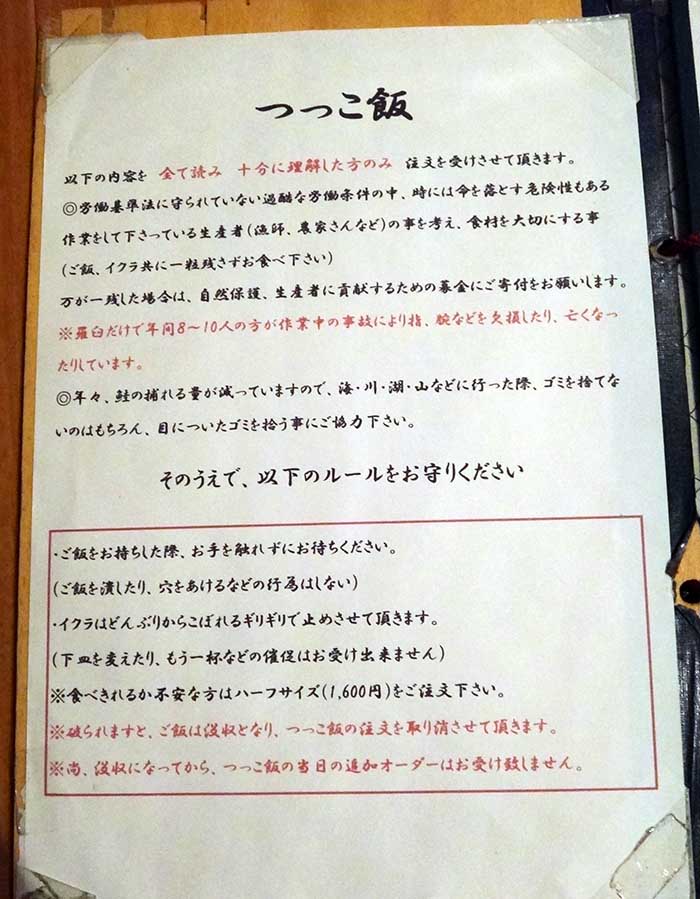 つっこ飯
以下の内容を 全て読み 十分に理解した方のみ 注文を受けさせて頂きます。
◎労働基準法に守られていない過酷な労働条件の中、時には命を落とす危険性もある
作業をして下さっている生産者(漁師、農家さんなど)の事を考え、食材を大切にする事
(ご飯、イクラ共に一粒残さずお食べ下さい)
万が一残した場合は、自然保護、生産者に貢献するための募金にご寄付をお願いします。
※羅臼だけで年間8～10人の方が作業中の事故により指、腕などを欠損したり、亡くなっ
たりしています。
◎年々、鮭の捕れる量が減っていますので、海・川・湖・山などに行った際、ゴミを捨てな
いのはもちろん、目についたゴミを拾う事にご協力下さい。
そのうえで、以下のルールをお守りください
・ご飯をお持ちした際、お手を触れずにお待ちください。
(ご飯を潰したり、穴をあけるなどの行為はしない)
・イクラはどんぶりからこぼれるギリギリで止めさせて頂きます。
(下皿を変えたり、もう一杯などの催促はお受け出来ません)
※食べきれるか不安な方はハーフサイズ(1,600円)をご注文下さい。
※破られますと、ご飯は没収となり、つっこ飯の注文を取り消させて頂きます。
※尚、没収になってから、つっこ飯の当日の追加オーダーはお受け致しません。